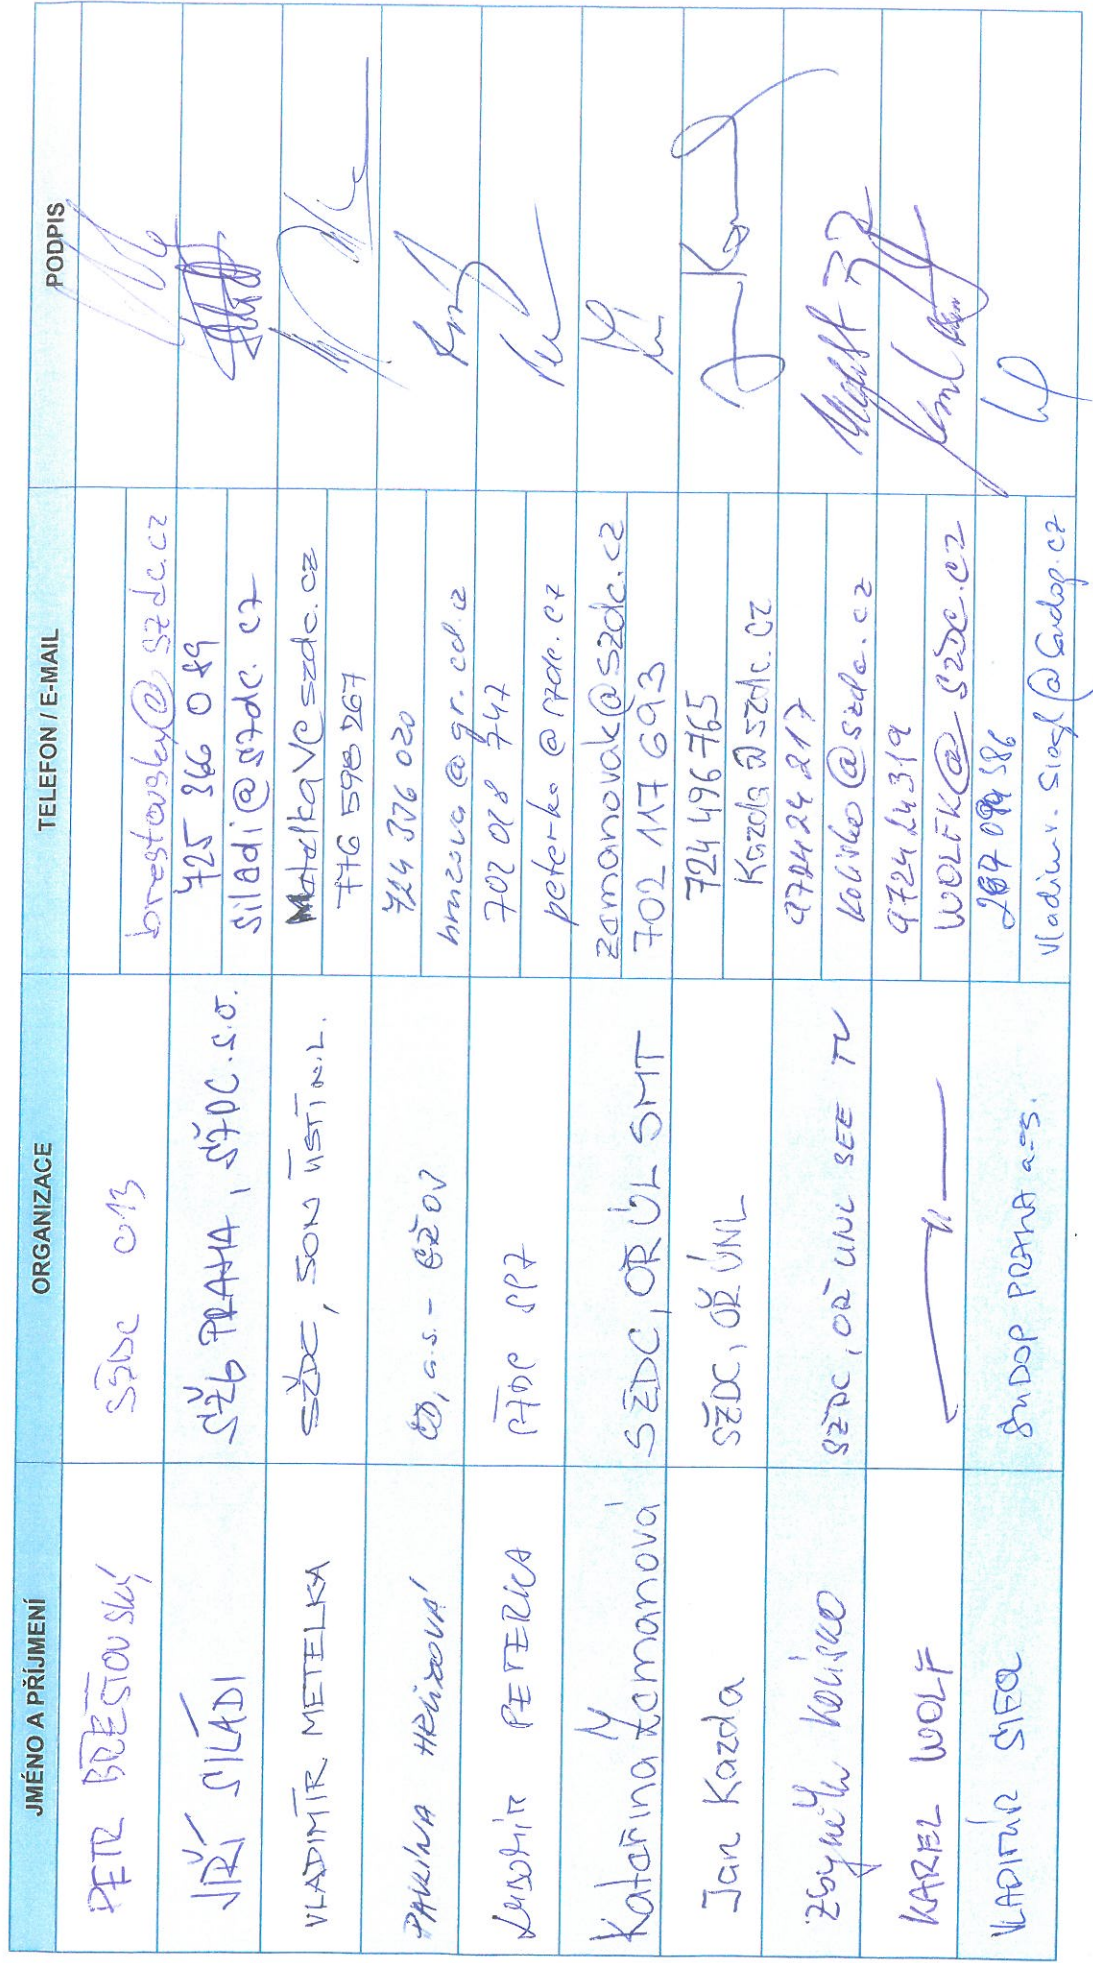 JMÉNO A PŘÍJMENÍ ORGANIZACE TELEFON / E-MAIL PODPIS
PETR BŘEŠŤOVSKÝ SŽDC O13
brestovsky@szdc.cz
JIŘÍ SILÁDI SŽG PRAHA, SŽDC.s.o. 725 366 089
siladi@szdc.cz
VLADIMÍR METELKA SŽDC, SON ÚSTÍ n.L. Metelkav@szdc.cz
776 598 267
PAVLÍNA HRŮZOVÁ ČD, a.s. - 724 336 020
hruzova@gr.cd.cz
PETERKA SŽDC 702 018 747
peterka@szdc.cz
Kateřina Zemanová SŽDC, OŘ ÚL SMT zemanovak@szdc.cz
702 117 693
Jan Kazda SŽDC, OŘ ÚNL 724 496 765
Kazda@szdc.cz
Zbyněk KOLÍSKO SŽDC, OŘ UNL SEE TV 972424217
kolisko@szdc.cz
KAREL WOLF — 〃 — 972424319
WOLFK@SŽDC.CZ
VLADIMÍR SUDOP PRAHA a.s. 267 094 386
@sudop.cz